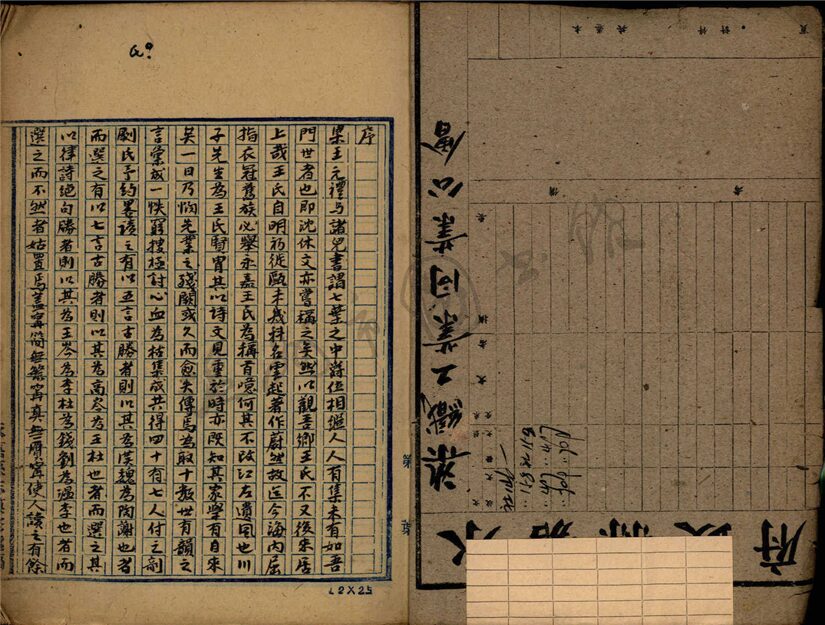 永嘉縣政府
染織工業同業公會
序
梁王元禮与諸兒書謂七葉之中爵位相繼人人有集未有如吾
門世者也即沈休文亦嘗稱之矣然以觀吾鄉王氏不又後來居
上哉王氏自明初從甌未幾科名雲起著作蔚然故迄今海内屈
指衣冠舊族必舉永嘉王氏為稱首噫何其不改江左遺風也川
子先生為王氏賢胄其以詩文見重於時亦既知其家學有自來
矣一日乃憫先業之殘闕或久而愈失傳焉為取十數世有韻之
言彙成一帙窮搜極討心血為枯集成共得四十有七人付之剞
劂氏予約畧讀之有以五言古勝者則以其為漢魏為陶謝也者
而選之有以七言古勝者則以其為高岑為王杜也者而選之其
以律詩絕句勝者則以其為王岑為李杜為錢劉為溫李也者而
選之而不然者姑置焉蓋甯簡無繁甯真無贗甯使人讀之有餘
12X25